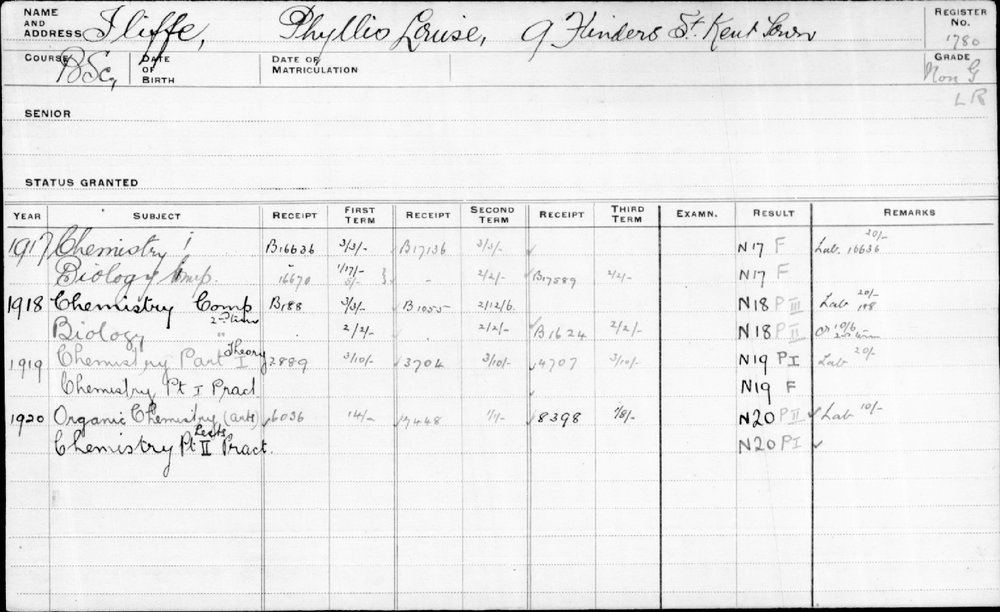 NAME AND ADDRESS Iliffe, Phyllis Louise, 9 Flinders St. Kent Town REGISTER No. 1780
COURSE BSc, DATE OF BIRTH DATE OF MATRICULATION GRADE Non G
LR
SENIOR
STATUS GRANTED
YEAR SUBJECT RECEIPT FIRST TERM RECEIPT SECOND TERM RECEIPT THIRD TERM EXAMN. RESULT REMARKS
1917 Chemistry I B16636 3/3/- B17136 3/3/- N17 F Lab. 20/- 16636
Biology Comp. 16670 1/17/- 5/- } - 2/2/- B17589 2/2/- N17 F
1918 Chemistry Comp B188 3/3/- B1055 2/12/6 N18 P III Lab 20/- 188
Biology 2nd time " 2/2/- 2/2/- B1624 2/2/- N18 P II 10/6 2nd term
1919 Chemistry Part I Theory 2889 3/10/- 3704 3/10/- 4707 3/10/- N19 PI Lab 20/-
Chemistry Pt I Pract N19 F
1920 Organic Chemistry (arts) 6036 14/- 7448 8398 N20 P II Lab 10/-
Chemistry Pt II Pract. N20 PI